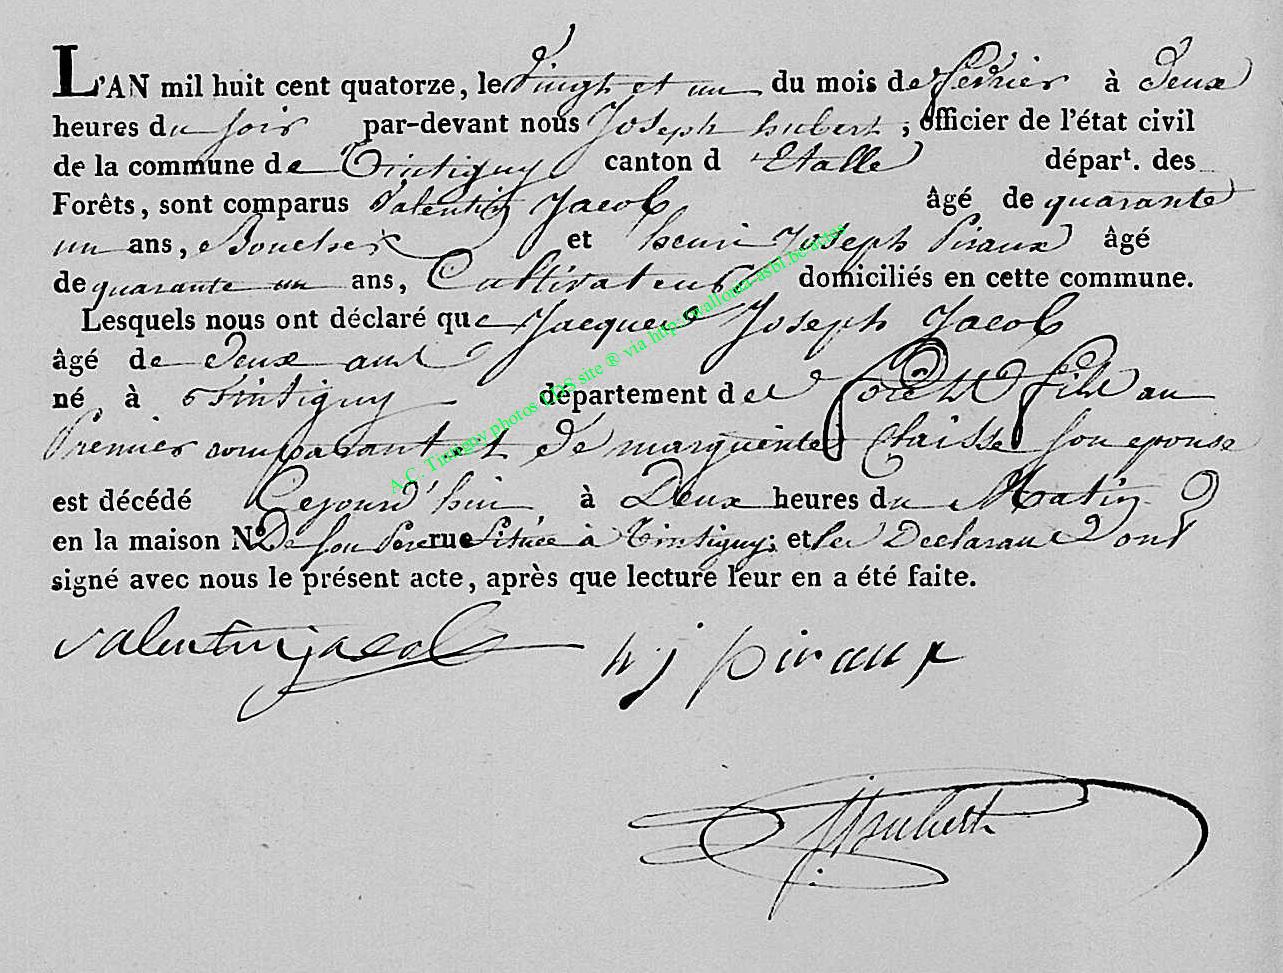 L'AN mil huit cent quatorze, le vingt et un du mois de fevrier à deux
heures du soir par-devant nous Joseph hubert, officier de l'état civil
de la commune de Tintigny canton d Etalle départ. des
Forêts, sont comparus Valentin Jacob âgé de quarante
un ans, Boucher et henri Joseph Piraux âgé
de quarante un ans, Cultivateurs domiciliés en cette commune.
Lesquels nous ont déclaré que Jacques Joseph Jacob
âgé de deux ans
né à Tintigny département des forêts fils au
Premier comparant et de marguerite Claisse son epouse
est décédé Cejourd'hui à Deux heures du Matin
en la maison No De son Pere rue située à Tintigny; et les Declarants ont
signé avec nous le présent acte, après que lecture leur en a été faite.
valentin jacob h j piraux
JHubert
A.C. Tintigny photos LDS site ® via http://wallonia-asbl.be/actes